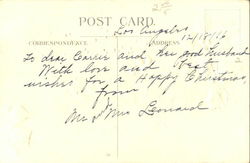 25
POST CARD.
Los Angeles
12/18/16
CORRESPONDENCE ADDRESS
To dear Carrie and her good husband
With love and best
wishes for a Happy Christmas,
from
Mr & Mrs Leonard